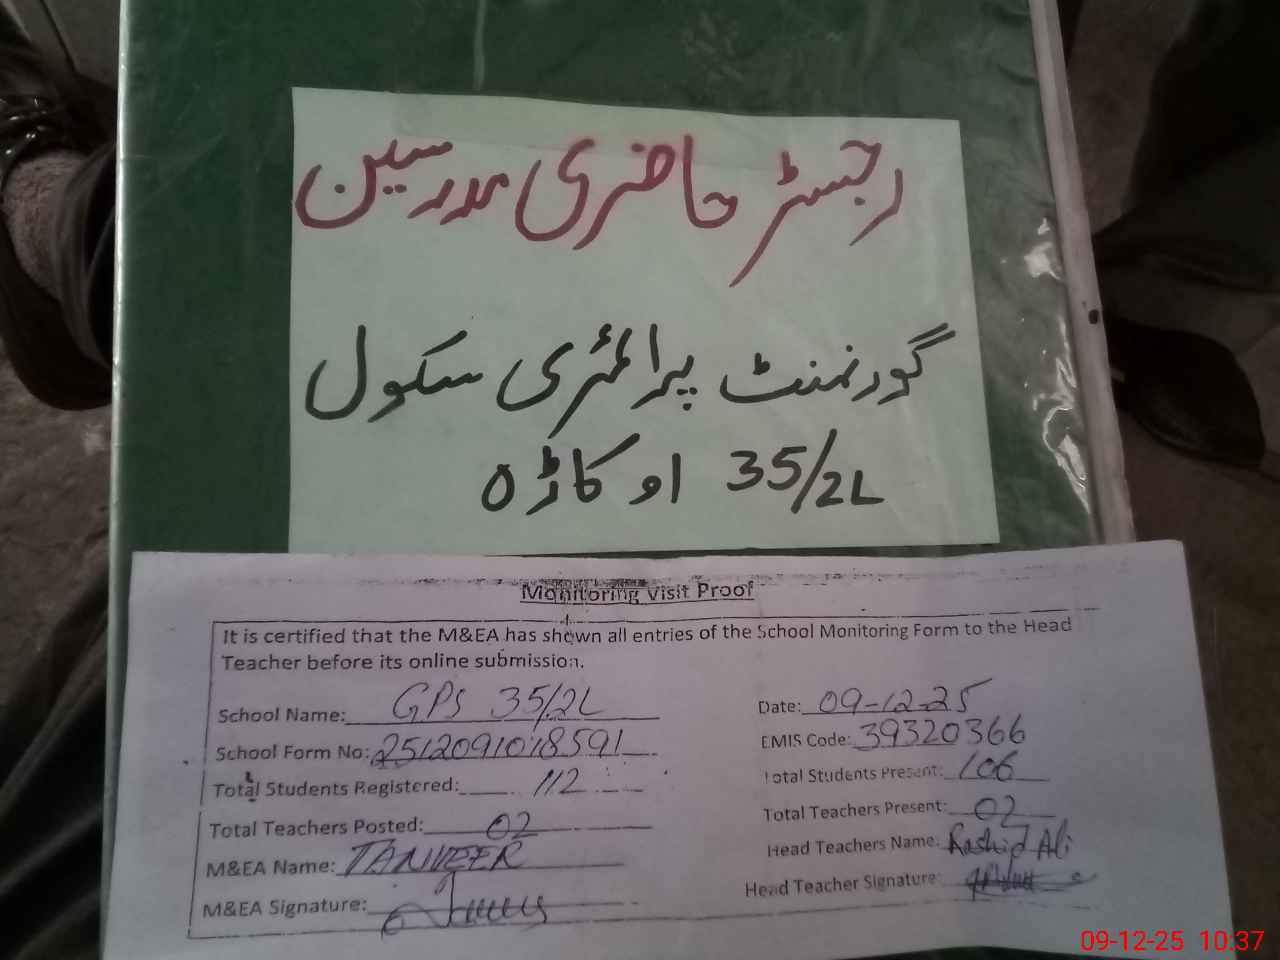 رجسٹر حاضری مدرسین
گورنمنٹ پرائمری سکول
35/2L اوکاڑہ
Monitoring Visit Proof
It is certified that the M&EA has shown all entries of the School Monitoring Form to the Head
Teacher before its online submission.
School Name: GPS 35/2L
Date: 09-12-25
School Form No: 2512091018591
EMIS Code: 39320366
Total Students Registered: 112
Total Students Present: 106
Total Teachers Posted: 02
Total Teachers Present: 02
M&EA Name: TANVEER
Head Teachers Name: Rashid Ali
M&EA Signature:
Head Teacher Signature:
09-12-25 10:37